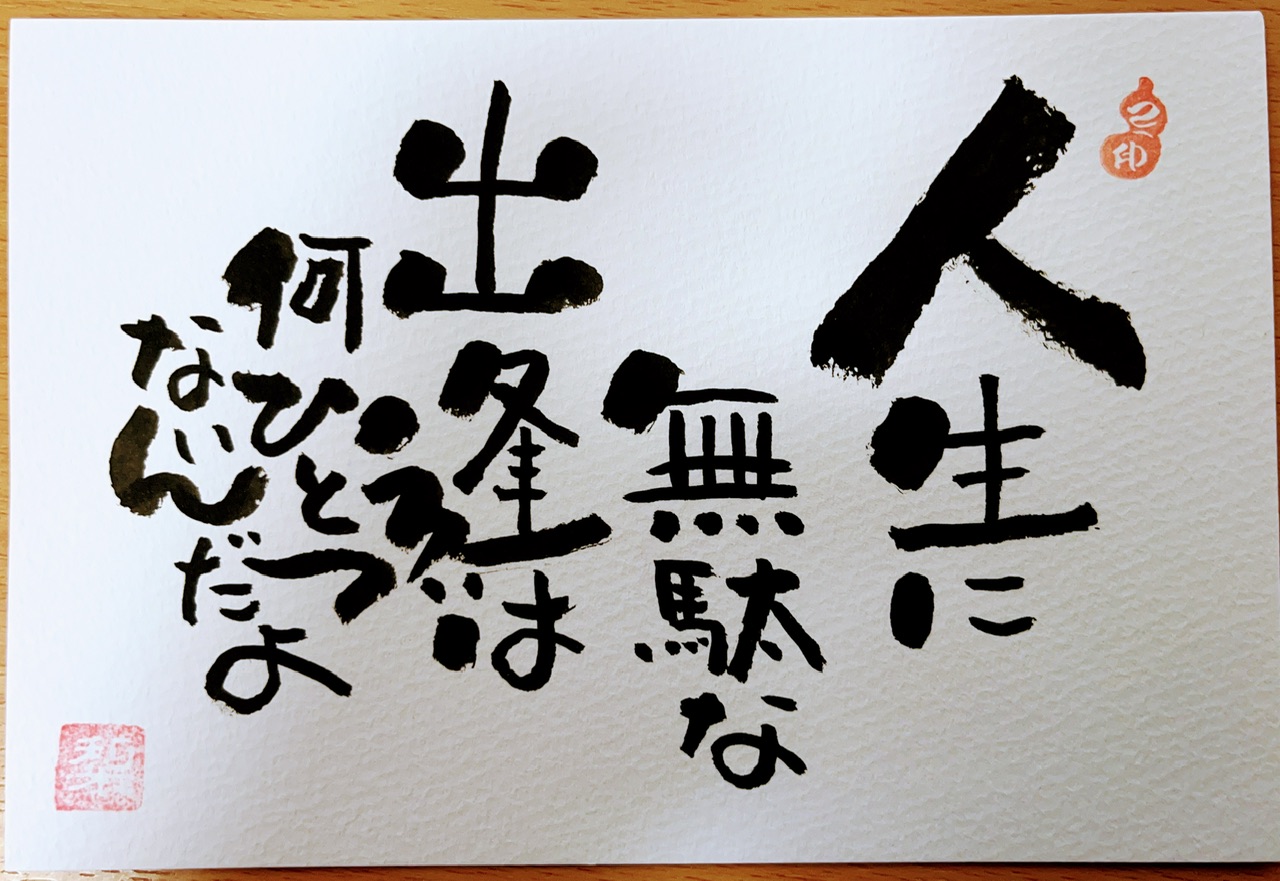 人生に
無駄な
出逢は
何ひとつ
ないんだよ